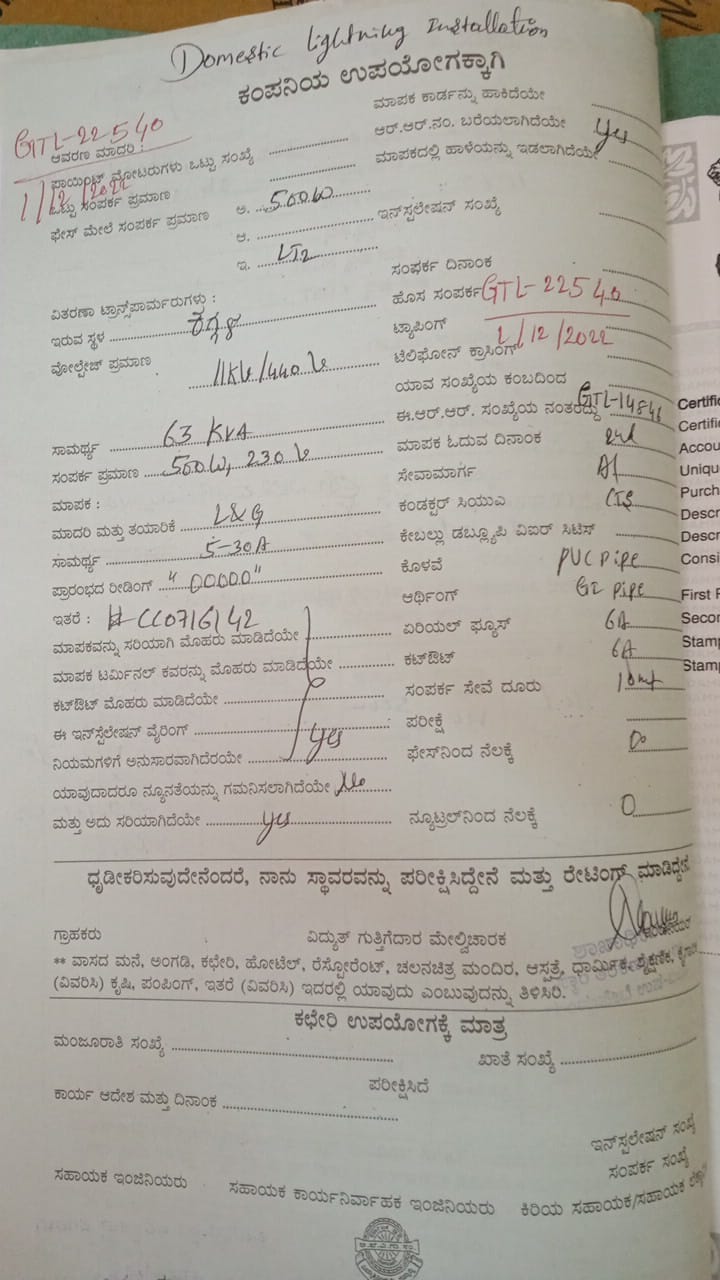 Domestic lightning Installation
ಕಂಪನಿಯ ಉಪಯೋಗಕ್ಕಾಗಿ
GTL-22540
1/12/2022
ಆವರಣ ಮಾದರಿ :
ಪಾಯಿಂಟ್ ಮೋಟರುಗಳು ಒಟ್ಟು ಸಂಖ್ಯೆ
ಒಟ್ಟು ಸಂಪರ್ಕ ಪ್ರಮಾಣ
ಫೇಸ್ ಮೇಲೆ ಸಂಪರ್ಕ ಪ್ರಮಾಣ ಅ. 500W
ಆ.
ಇ. LT2
ವಿತರಣಾ ಟ್ರಾನ್ಸ್‌ಪಾರ್ಮರುಗಳು :
ಇರುವ ಸ್ಥಳ
ವೋಲ್ಟೇಜ್ ಪ್ರಮಾಣ 11KV/440 V
ಸಾಮರ್ಥ್ಯ 63 KVA
ಸಂಪರ್ಕ ಪ್ರಮಾಣ 500W, 230 V
ಮಾಪಕ :
ಮಾದರಿ ಮತ್ತು ತಯಾರಿಕೆ L&G
ಸಾಮರ್ಥ್ಯ 5-30A
ಪ್ರಾರಂಭದ ರೀಡಿಂಗ್ "00000"
ಇತರೆ : # CC0716142
ಮಾಪಕವನ್ನು ಸರಿಯಾಗಿ ಮೊಹರು ಮಾಡಿದೆಯೇ
ಮಾಪಕ ಟರ್ಮಿನಲ್ ಕವರನ್ನು ಮೊಹರು ಮಾಡಿದೆಯೇ
ಕಟ್‌ಔಟ್ ಮೊಹರು ಮಾಡಿದೆಯೇ
ಈ ಇನ್‌ಸ್ಪೆಲೇಷನ್ ವೈರಿಂಗ್
ನಿಯಮಗಳಿಗೆ ಅನುಸಾರವಾಗಿದೆರಯೇ yes
ಯಾವುದಾದರೂ ನ್ಯೂನತೆಯನ್ನು ಗಮನಿಸಲಾಗಿದೆಯೇ No
ಮತ್ತು ಅದು ಸರಿಯಾಗಿದೆಯೇ yes
ಮಾಪಕ ಕಾರ್ಡನ್ನು ಹಾಕಿದೆಯೇ
ಆರ್.ಆರ್.ನಂ. ಬರೆಯಲಾಗಿದೆಯೇ yes
ಮಾಪಕದಲ್ಲಿ ಹಾಳೆಯನ್ನು ಇಡಲಾಗಿದೆಯೇ
ಇನ್‌ಸ್ಪಲೇಷನ್ ಸಂಖ್ಯೆ
ಸಂಪರ್ಕ ದಿನಾಂಕ
ಹೊಸ ಸಂಪರ್ಕ GTL-22540
ಟ್ಯಾಪಿಂಗ್ 1/12/2022
ಟೆಲಿಫೋನ್ ಕ್ರಾಸಿಂಗ್
ಯಾವ ಸಂಖ್ಯೆಯ ಕಂಬದಿಂದ
ಈ.ಆರ್.ಆರ್. ಸಂಖ್ಯೆಯ ನಂತರದ್ದು
ಮಾಪಕ ಓದುವ ದಿನಾಂಕ 2nd
ಸೇವಾಮಾರ್ಗ
ಕಂಡಕ್ಟರ್ ಸಿಯುಎ
ಕೇಬಲ್ಲು ಡಬ್ಲ್ಯೂಪಿ ವಿಐರ್ ಸಿಟಿಸ್
ಕೊಳವೆ PVC pipe
ಆರ್ಥಿಂಗ್ GI pipe
ಏರಿಯಲ್ ಫ್ಯೂಸ್ 6A
ಕಟ್‌ಔಟ್ 6A
ಸಂಪರ್ಕ ಸೇವೆ ದೂರು
ಪರೀಕ್ಷೆ
ಫೇಸ್‌ನಿಂದ ನೆಲಕ್ಕೆ
ನ್ಯೂಟ್ರಲ್‌ನಿಂದ ನೆಲಕ್ಕೆ 0
ಧೃಡೀಕರಿಸುವುದೇನೆಂದರೆ, ನಾನು ಸ್ಥಾವರವನ್ನು ಪರೀಕ್ಷಿಸಿದ್ದೇನೆ ಮತ್ತು ರೇಟಿಂಗ್ ಮಾಡಿದ್ದೇನೆ
ಗ್ರಾಹಕರು ವಿದ್ಯುತ್ ಗುತ್ತಿಗೆದಾರ ಮೇಲ್ವಿಚಾರಕ
** ವಾಸದ ಮನೆ, ಅಂಗಡಿ, ಕಛೇರಿ, ಹೋಟೆಲ್, ರೆಸ್ಟೋರೆಂಟ್, ಚಲನಚಿತ್ರ ಮಂದಿರ, ಆಸ್ಪತ್ರೆ, ಧಾರ್ಮಿಕ, ಶೈಕ್ಷಣಿಕ,
(ವಿವರಿಸಿ) ಕೃಷಿ, ಪಂಪಿಂಗ್, ಇತರೆ (ವಿವರಿಸಿ) ಇದರಲ್ಲಿ ಯಾವುದು ಎಂಬುವುದನ್ನು ತಿಳಿಸಿರಿ.
ಕಛೇರಿ ಉಪಯೋಗಕ್ಕೆ ಮಾತ್ರ
ಮಂಜೂರಾತಿ ಸಂಖ್ಯೆ ಖಾತೆ ಸಂಖ್ಯೆ
ಪರೀಕ್ಷಿಸಿದೆ
ಕಾರ್ಯ ಆದೇಶ ಮತ್ತು ದಿನಾಂಕ
ಇನ್‌ಸ್ಪಲೇಷನ್ ಸಂಖ್ಯೆ
ಸಂಪರ್ಕ ಸಂಖ್ಯೆ
ಸಹಾಯಕ ಇಂಜಿನಿಯರು ಸಹಾಯಕ ಕಾರ್ಯನಿರ್ವಾಹಕ ಇಂಜಿನಿಯರು ಕಿರಿಯ ಸಹಾಯಕ/ಸಹಾಯಕ
Certific
Certific
Accou
Uniqu
Purch
Descr
Descr
Consi
First P
Secon
Stamp
Stamp